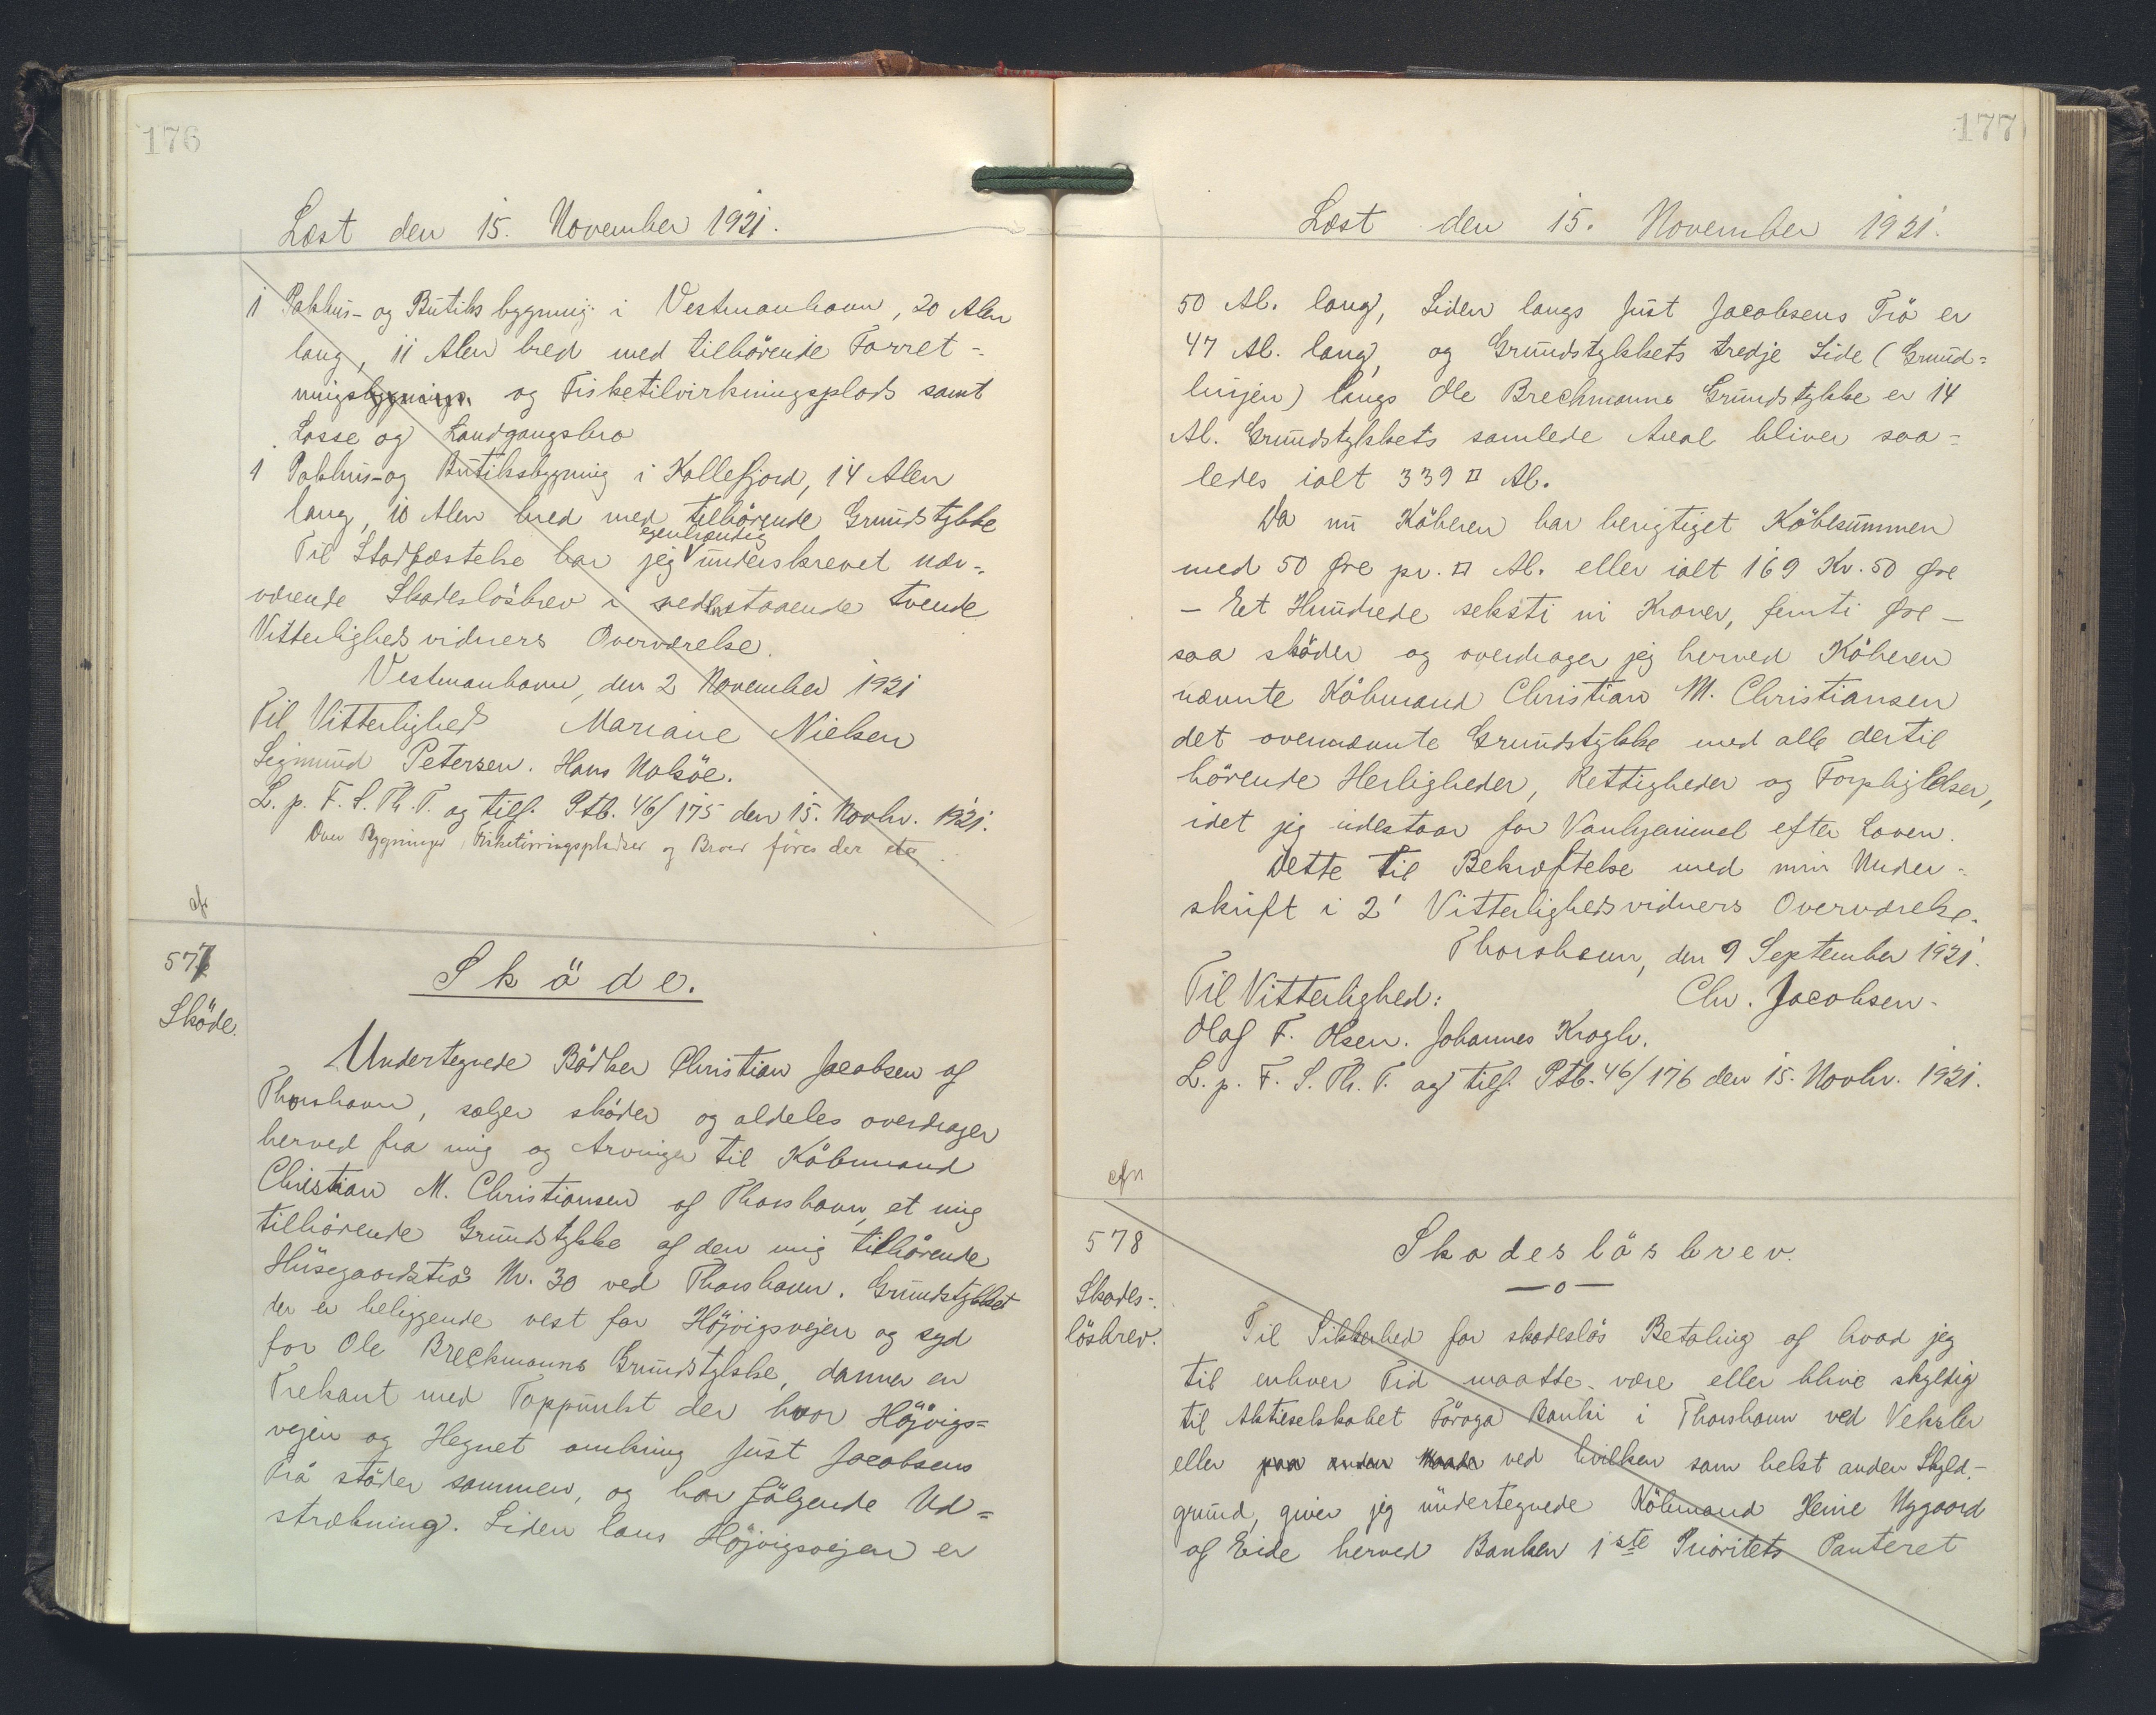 176
Læst den 15. November 1921.
1 Pakhus- og Butiksbygning i Vestmanhavn, 20 Alen
lang, 11 Alen bred med tilhörende Forret-
nings og Fisketilvirkningsplads samt
Losse og Landgangsbro
1 Pakhus- og Butiksbygning i Kollefjord, 14 Alen
lang, 10 Alen bred med tilhörende Grundstykke
Til Stadfæstelse har jeg egenhændig underskrevet nær-
værende Skadeslösbrev i nedenstaaende tvende
Vitterlighedsvidners Overværelse.
Vestmanhavn, den 2 November 1921
Til Vitterlighed Mariane Nielsen
Sigmund Petersen. Hans Nolsöe.
L. p. F. S. Th. T. og tilf. Ptb. 46/175 den 15. Novbr. 1921.
Over Bygninger, Fisketörringspladser og Broer föres der
577
Sköde.
Sköde.
Undertegnede Bödker Christian Jacobsen af
Thorshavn, sælger sköder og aldeles overdrager
herved fra mig og Arvinger til Köbmand
Christian M. Christiansen af Thorshavn, et mig
tilhörende Grundstykke af den mig tilhörende
Húsegaardströ Nr. 30 ved Thorshavn. Grundstykket
der er beliggende vest for Höjvigsvejen og syd
for Ole Breckmanns Grundstykke, danner en
Trekant med Toppunkt der hvor Höjvigs=
vejen og Hegnet omkring Just Jacobsens
Trö stöder sammen, og har fölgende Ud=
strækning. Siden lans Höjvigsvejen er
177
Læst den 15. November 1921.
50 Al. lang, Siden langs Just Jacobsens Trö er
47 Al. lang, og Grundstykkets tredje Side (Grund=
linjen) langs Ole Breckmanns Grundstykke er 14
Al. Grundstykkets samlede Areal bliver saa=
ledes ialt 339 □ Al.
Da nu Köberen har berigtiget Köbesummen
med 50 Øre pr. □ Al. eller ialt 169 Kr. 50 Øre
- Et Hundrede seksti ni Kroner, femti Øre -
saa sköder og overdrager jeg herved Köberen
nævnte Köbmand Christian M. Christiansen
det ovennævnte Grundstykke med alle dertil
hörende Herligheder, Rettigheder og Forpligtelser,
idet jeg indestaar for Vanhjemmel efter Loven.
Dette til Bekræftelse med min Under-
skrift i 2' Vitterlighedsvidners Overværelse.
Thorshavn, den 9 September 1921.
Til Vitterlighed: Chr. Jacobsen.
Olaf F. Olsen. Johannes Krogh.
L. p. F. S. Th. T. og tilf. Ptb. 46/176 den 15. Novbr. 1921.
578
Skades-
lösbrev.
Skadeslösbrev.
—o—
Til Sikkerhed for skadeslös Betaling af hvad jeg
til enhver Tid maatte være eller blive skyldig
til Aktieselskabet Föroya Banki i Thorshavn ved Veksler
eller paa anden Maade ved hvilken som helst anden Skyld-
grund, giver jeg undertegnede Köbmand Heine Nygaard
af Eide herved Banken 1ste Prioritets Panteret